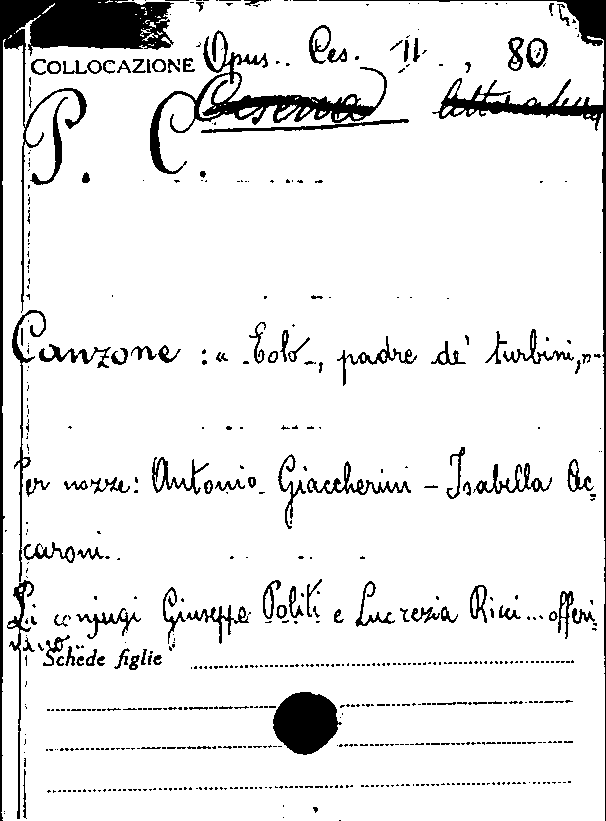 COLLOCAZIONE Opus. Ces. II, 80
Cesena letteratura
P. C.
Canzone: « Eolo, padre de' turbini, »
Per nozze: Antonio Giaccherini - Isabella Ac=
caroni.
Li conjugi Giuseppe Politi e Lucrezia Ricci... offeri=
vano..
Schede figlie